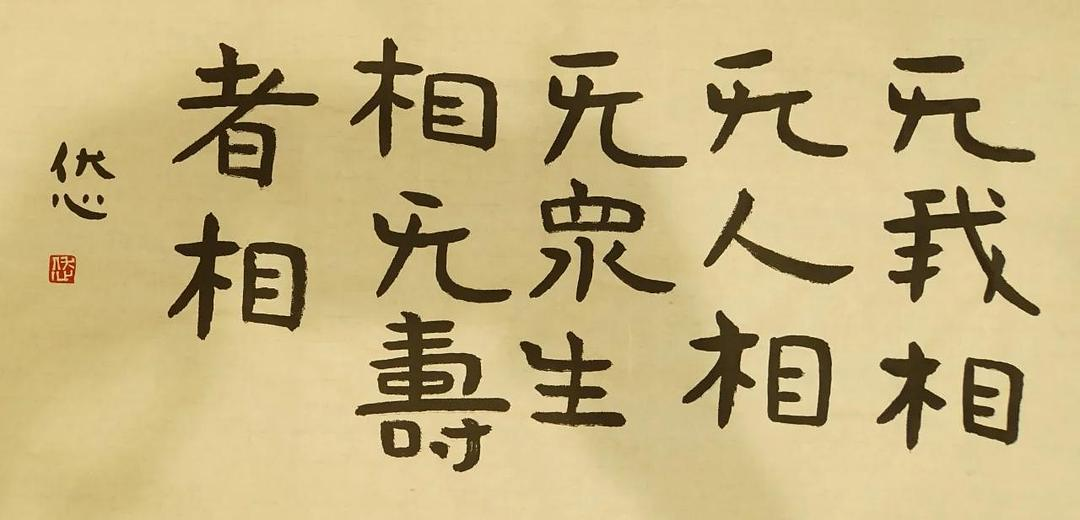 无我相
无人相
无衆生
相无壽
者相